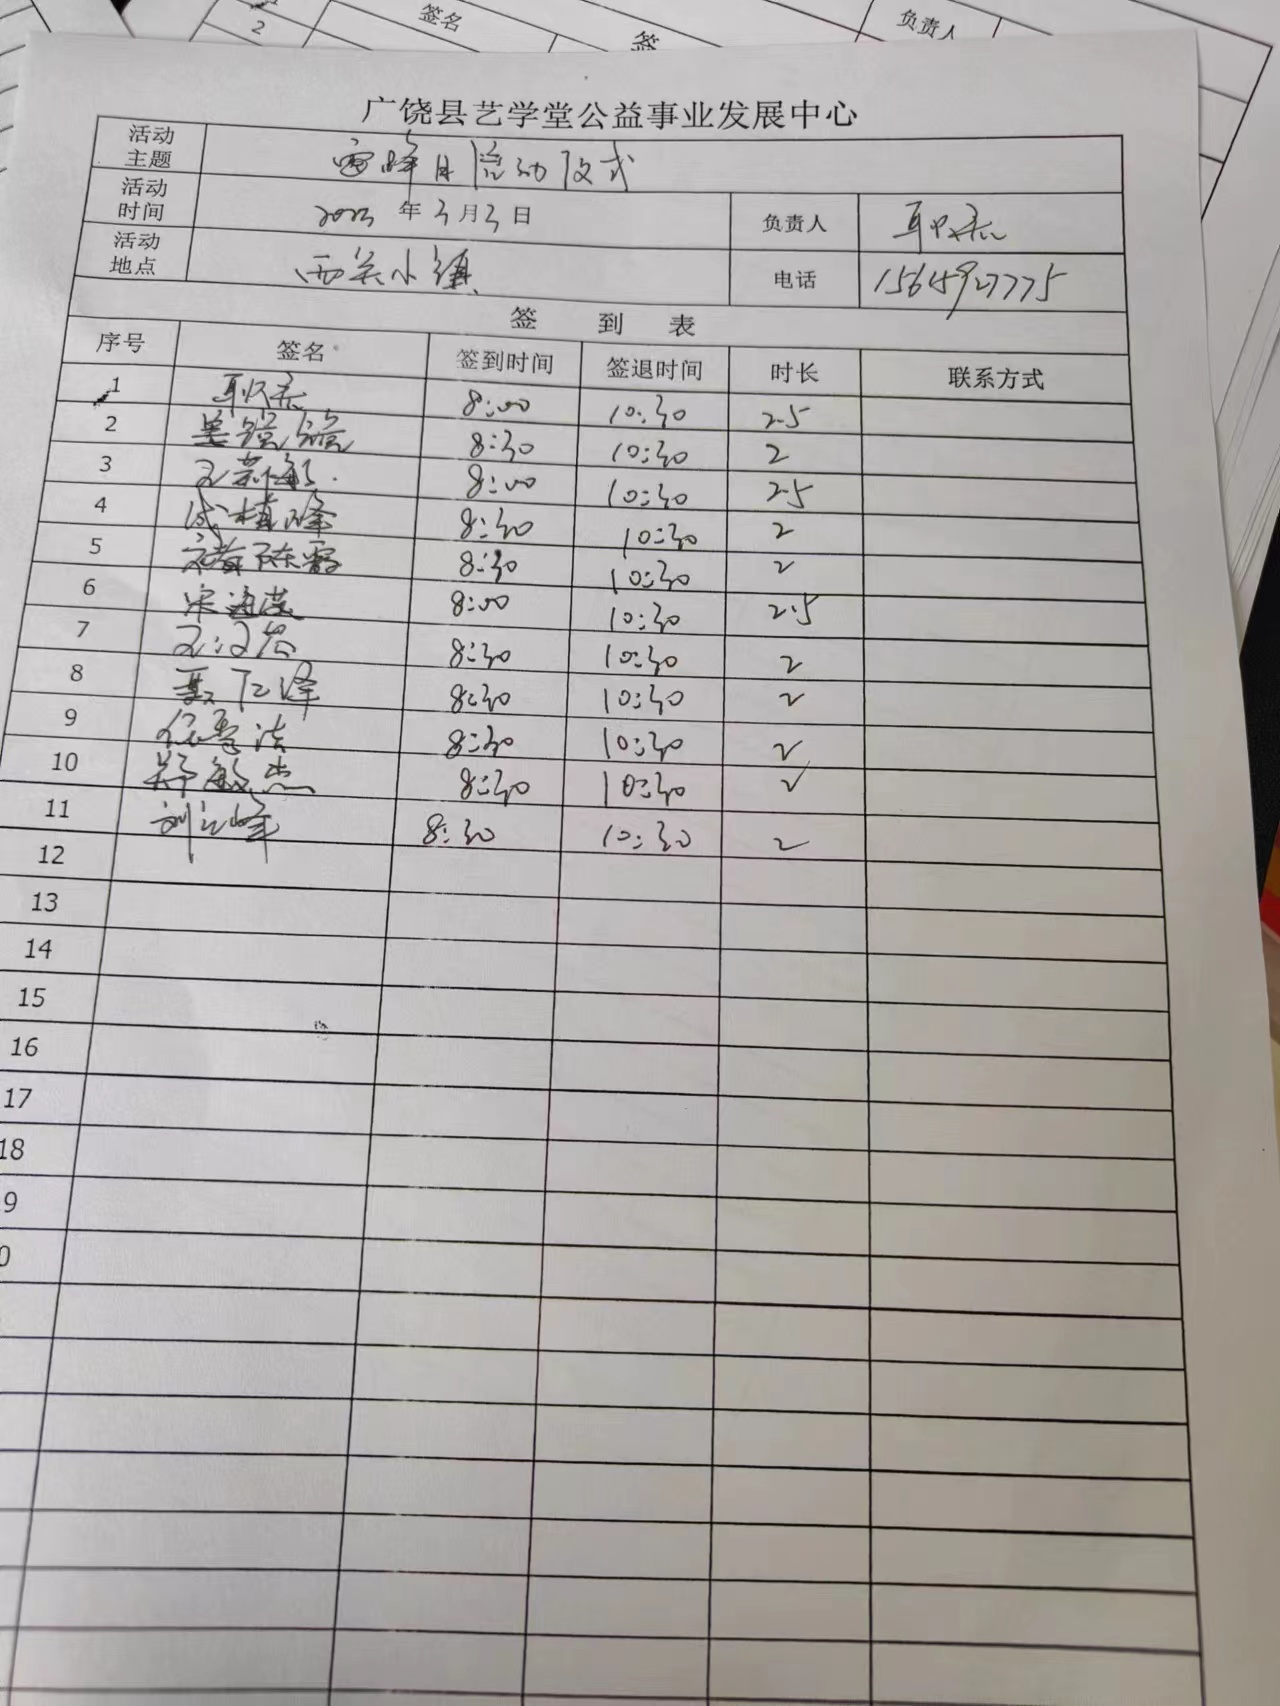 签名
负责人
2
签
广饶县艺学堂公益事业发展中心
活动主题 雷峰月启动仪式
活动时间 2023年3月3日 负责人
活动地点 西关小镇 电话 15645927775
签 到 表
序号 签名 签到时间 签退时间 时长 联系方式
1 8:00 10:30 2.5
2 8:30 10:30 2
3 8:00 10:30 2.5
4 8:30 10:30 2
5 8:30 10:30 2
6 宋海燕 8:00 10:30 2.5
7 8:30 10:30 2
8 8:30 10:30 2
9 8:30 10:30 2
10 郑敏杰 8:30 10:30 2
11 刘江峰 8:30 10:30 2
12
13
14
15
16
17
18
9
0